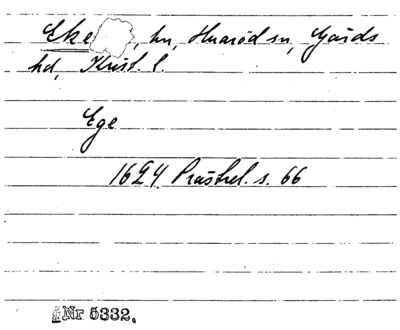 Eke , hn, Huaröd sn, Gärds
hd, Krist. l.
Ege
1624 Prästrel. s. 66
Nr 5332.